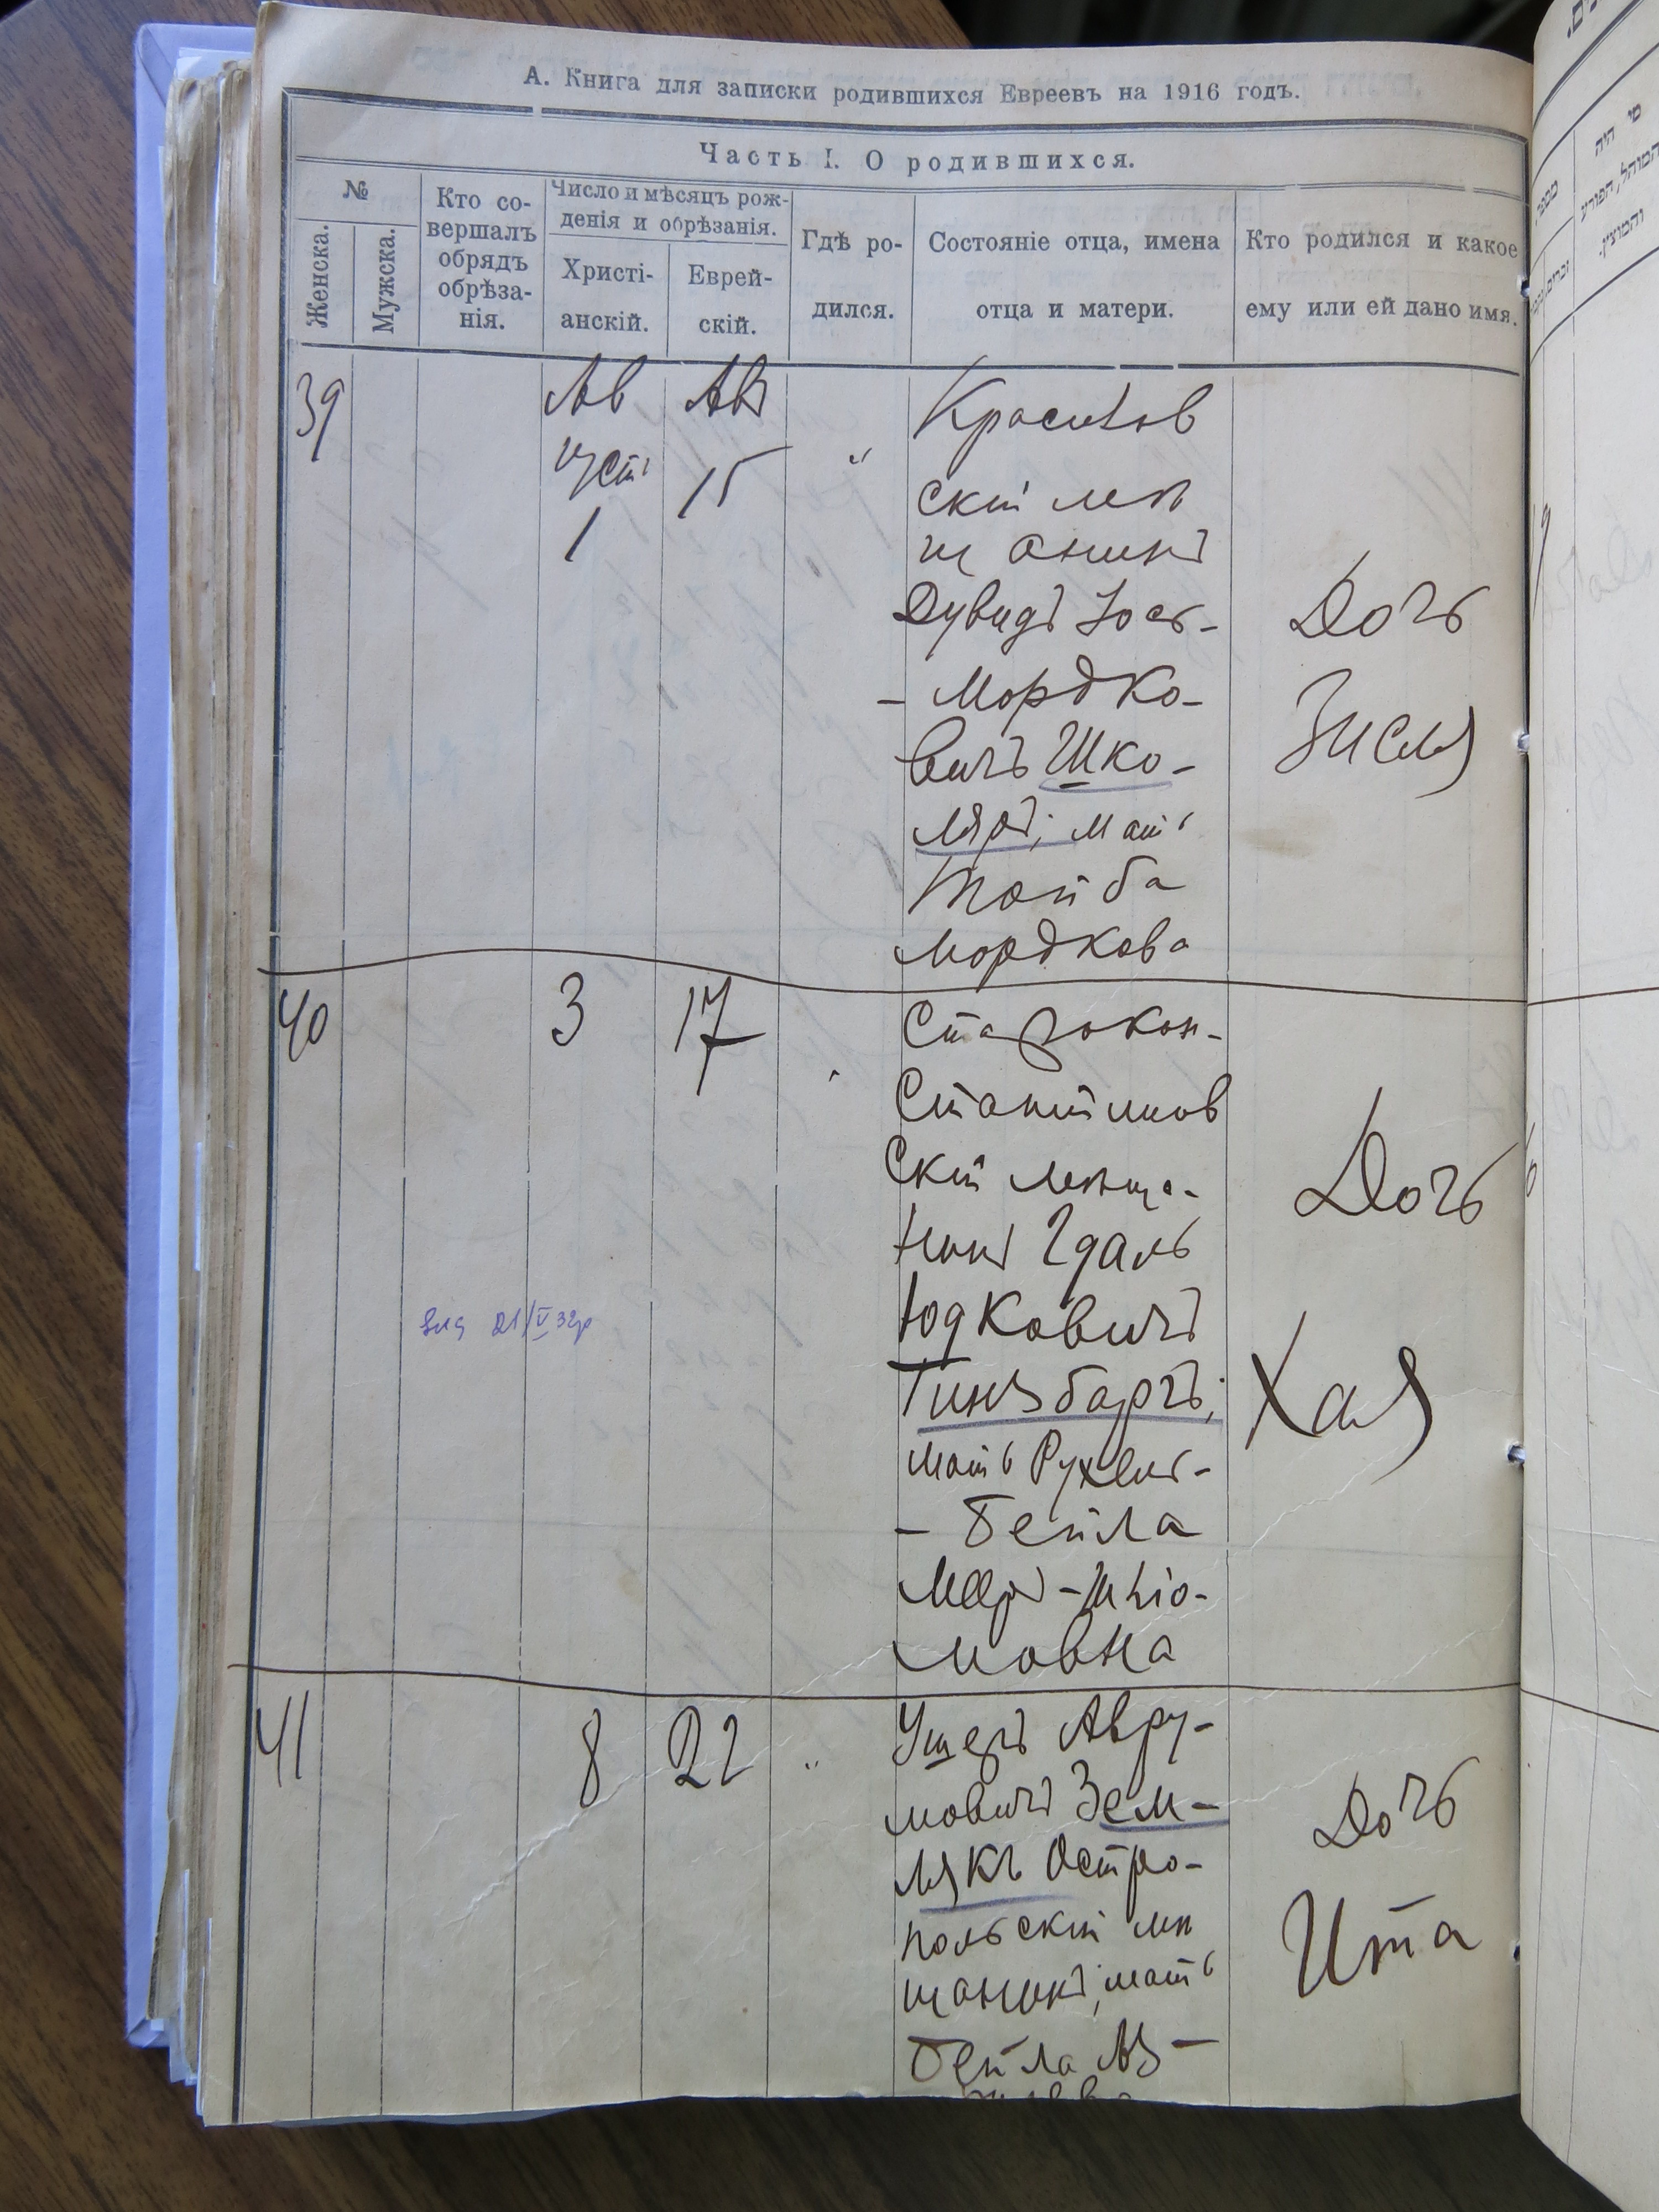 А. Книга для записки родившихся Евреевъ на 1916 годъ.
Часть I. О родившихся.
№
Женска.
Мужска.
Кто со-
вершалъ
обрядъ
обрѣза-
нія.
Число и мѣсяцъ рож-
денія и обрѣзанія.
Христі-
анскій.
Еврей-
скій.
Гдѣ ро-
дился.
Состояніе отца, имена
отца и матери.
Кто родился и какое
ему или ей дано имя.
39
Ав
густ
1
Ав
15
"
Красилов
скій мѣ
щанинъ
Дувидъ Іось-
- Мордко-
вичъ Шко-
ляръ; мать
Тойба
Мордкова
Дочь
Зисля
40
3
17
Старокон-
стантинов
скій мѣща-
нинъ Гдаль
Юдковичъ
Гинзбаргъ;
мать Рухель-
- Бейла
Меръ-Шлio-
мовна
Дочь
Хая
21/V 32р
41
8
22
"
Ушеръ Авру-
мовичъ Зем-
лякъ Остро-
польскій мѣ
щанинъ; мать
Бейла Из-
Дочь
Ита